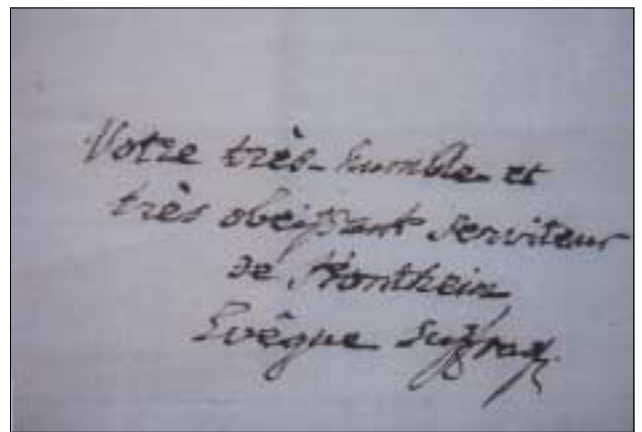 Votre très-humble et
très obeissant serviteur
de Hontheim,
Evêque Suffrag.